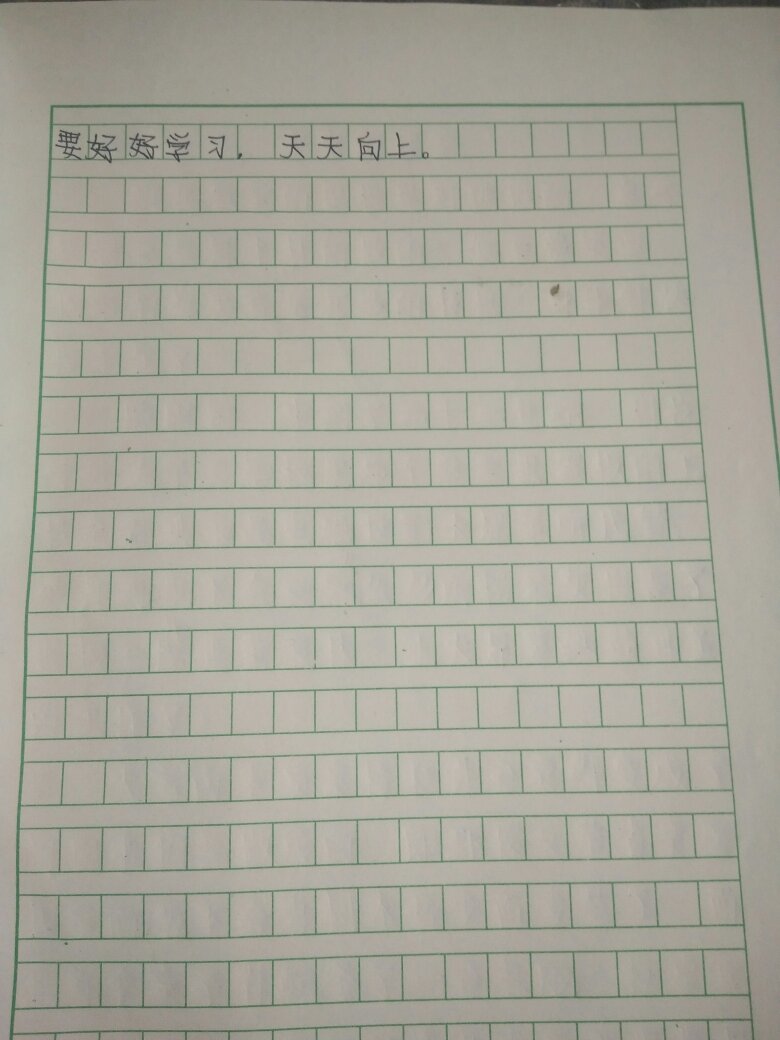 要好好学习，天天向上。